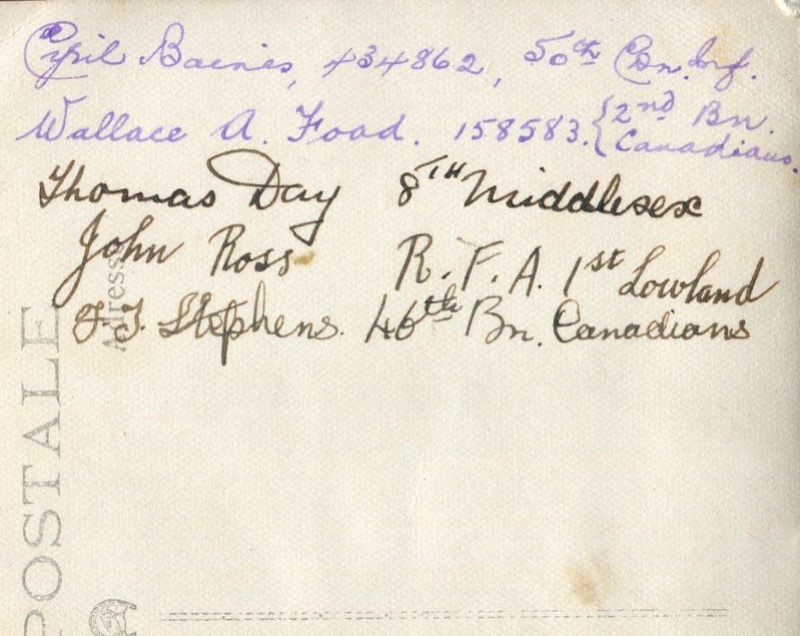 Cyril Baines, 434862, 50th Bn. Inf.
Wallace A. Foad. 158583. { 2nd Bn. Canadians.
Thomas Day 8TH Middlesex
John Ross R. F. A. 1st Lowland
F. J. Stephens. 46th Bn. Canadians
Adresse
POSTALE